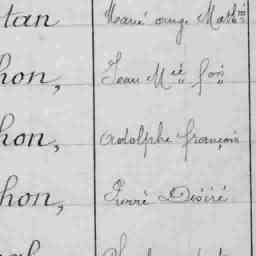 tan Marie ange Math
hon, Jean Mie fois
hon, Adolphe françois
hon, Pierre Désiré